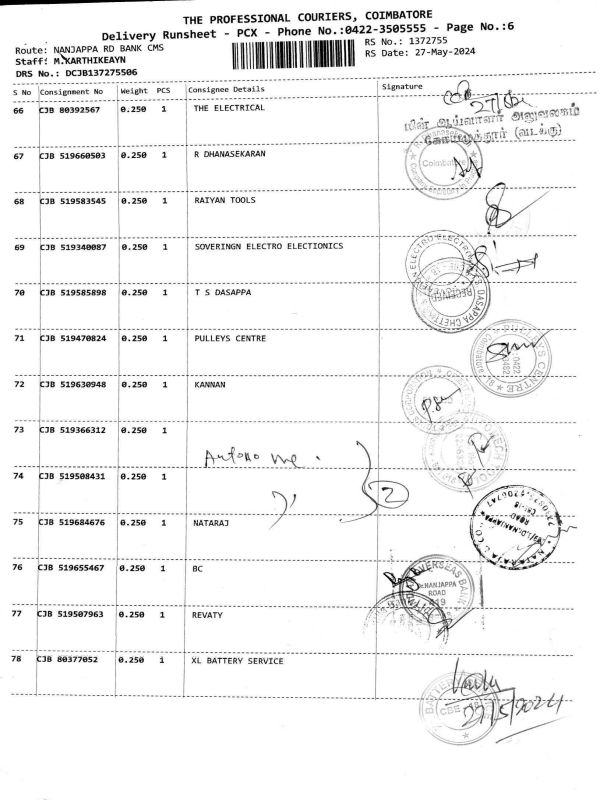 THE PROFESSIONAL COURIERS, COIMBATORE
Delivery Runsheet - PCX - Phone No.:0422-3505555 - Page No.:6
Route: NANJAPPA RD BANK CMS
RS No.: 1372755
Staff: M.KARTHIKEAYN
RS Date: 27-May-2024
DRS No.: DCJB137275506
S No Consignment No Weight PCS Consignee Details Signature
66 CJB 80392567 0.250 1 THE ELECTRICAL
67 CJB 519660503 0.250 1 R DHANASEKARAN
Coimbatore
68 CJB 519583545 0.250 1 RAIYAN TOOLS
69 CJB 519340087 0.250 1 SOVERINGN ELECTRO ELECTIONICS
70 CJB 519585898 0.250 1 T S DASAPPA
RECEIVED
71 CJB 519470824 0.250 1 PULLEYS CENTRE
PULLEYS CENTRE
0422
72 CJB 519630948 0.250 1 KANNAN
73 CJB 519366312 0.250 1
74 CJB 519508431 0.250 1
2
75 CJB 519684676 0.250 1 NATARAJ
ROAD
76 CJB 519655467 0.250 1 BC
OVERSEAS BANK
NANJAPPA
ROAD
77 CJB 519507963 0.250 1 REVATY
78 CJB 80377052 0.250 1 XL BATTERY SERVICE
BATTERY
CBE
27/5/2024